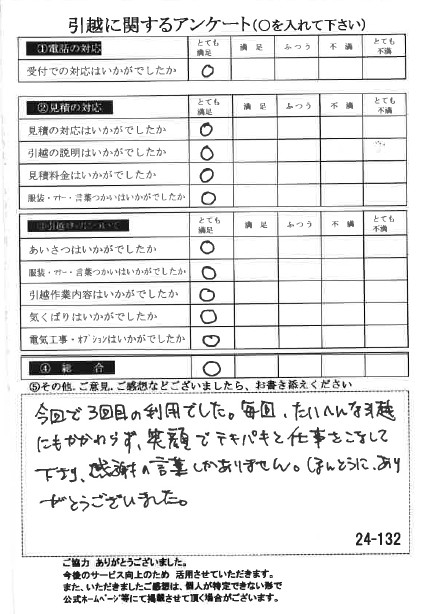 引越に関するアンケート(○を入れて下さい)
①電話の対応 とても満足 満足 ふつう 不満 とても不満
受付での対応はいかがでしたか ○
②見積の対応 とても満足 満足 ふつう 不満 とても不満
見積の対応はいかがでしたか ○
引越の説明はいかがでしたか ○
見積料金はいかがでしたか ○
服装・マナー・言葉つかいはいかがでしたか ○
とても満足 満足 ふつう 不満 とても不満
あいさつはいかがでしたか ○
服装・マナー・言葉つかいはいかがでしたか ○
引越作業内容はいかがでしたか ○
気くばりはいかがでしたか ○
電気工事・オプションはいかがでしたか ○
④ 総 合 ○
⑤その他。ご意見。ご感想などございましたら、お書き添えください
今回で3回目の利用でした。毎回、たいへんな引越
にもかかわらず、笑顔でテキパキと仕事をこなして
下さり、感謝の言葉しかありません。ほんとうに、あり
がとうございました。
24-132
ご協力 ありがとうございました。
今後のサービス向上のため 活用させていただきます。
また、いただきましたご感想は、個人が特定できない形で
公式ホームページ等にて掲載させて頂く場合がございます。